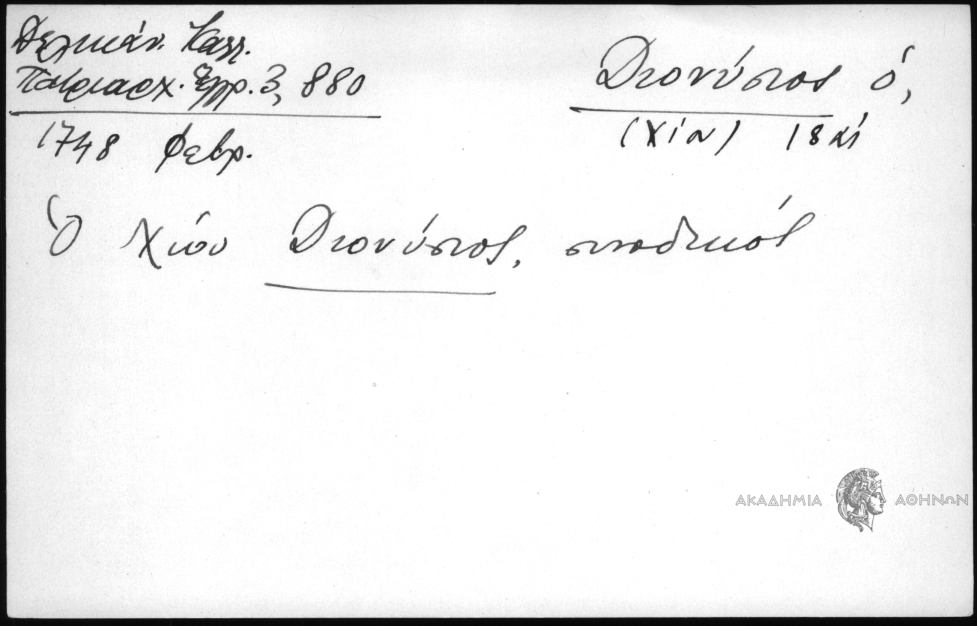 Δελικάν. Καλλ.
Πατριαρχ. Ἔγγρ. 3, 880
1748 Φεβρ.
Διονύσιος ὁ,
(Χίου) 18 αἰ
Ὁ Χίου Διονύσιος, συνοδικός
ΑΚΑΔΗΜΙΑ ΑΘΗΝΩΝ